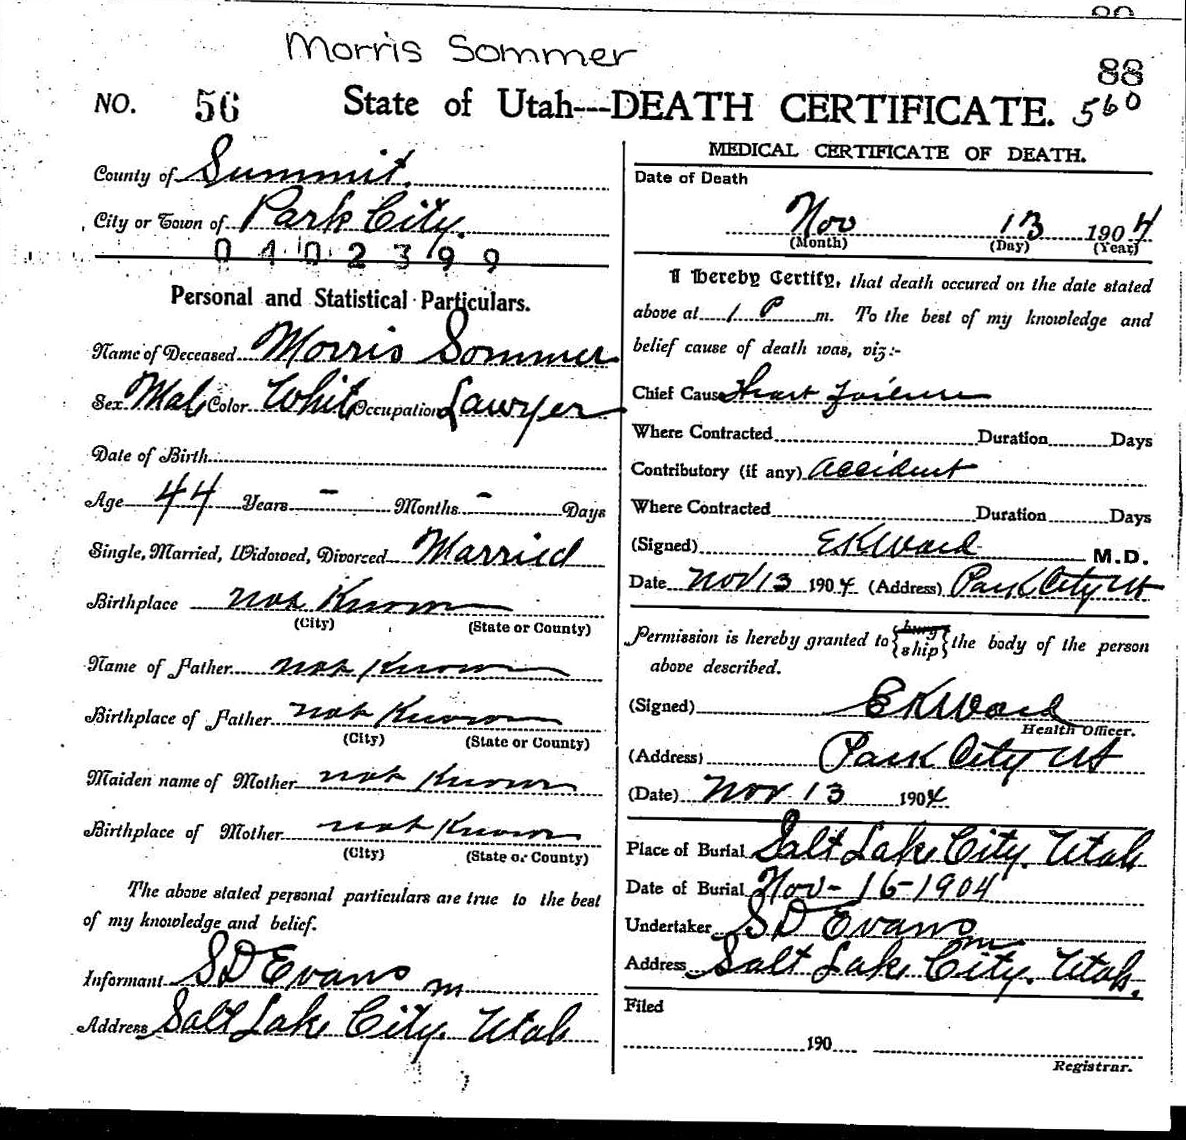 Morris Sommer
88
NO. 56 State of Utah---DEATH CERTIFICATE. 560
County of Summit.
City or Town of Park City.
0402399
Personal and Statistical Particulars.
Name of Deceased Morris Sommer
Sex Mal Color Whit Occupation Lawyer
Date of Birth
Age 44 Years - Months - Days
Single, Married, Widowed, Divorced Married
Birthplace not Known
(City) (State or County)
Name of Father not Known
Birthplace of Father not Known
(City) (State or County)
Maiden name of Mother not Known
Birthplace of Mother not Known
(City) (State or County)
The above stated personal particulars are true to the best
of my knowledge and belief.
Informant S D Evans m
Address Salt Lake City. Utah
MEDICAL CERTIFICATE OF DEATH.
Date of Death
Nov 13 1904
(Month) (Day) (Year)
I hereby Certify, that death occured on the date stated
above at 1 P m. To the best of my knowledge and
belief cause of death was, viz:-
Chief Cause Heart Failure
Where Contracted Duration Days
Contributory (if any) accident
Where Contracted Duration Days
(Signed) EKWard M.D.
Date Nov 13 1904 (Address) Park City Ut
Permission is hereby granted to {bury
ship} the body of the person
above described.
(Signed) EKWard
Health Officer.
(Address) Park City Ut
(Date) Nov 13 1904
Place of Burial Salt Lake City. Utah
Date of Burial Nov-16-1904
Undertaker S D Evans
m
Address Salt Lake City. Utah.
Filed
190
Registrar.